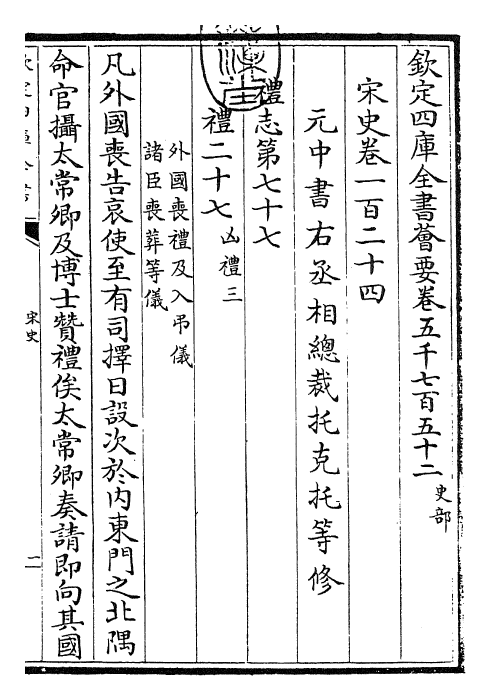 欽定四庫全書薈要卷五千七百五十二 史部
宋史卷一百二十四
元中書右丞相總裁托克托等修
禮志第七十七
禮二十七 凶禮三
外國喪禮及入弔儀
諸臣喪葬等儀
凡外國喪告哀使至有司擇日設次於內東門之北隅
命官攝太常卿及博士贊禮俟太常卿奏請即向其國
宋史